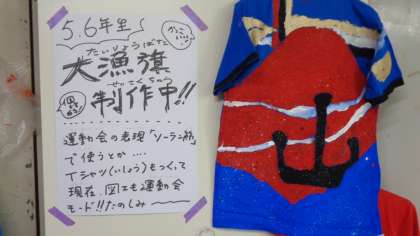 5.6年生〜
かっこいい
たいりょうばた
大漁旗
せいさくちゅう
制作中!!
運動会の表現「ソーラン節」
で使うとか…
Tシャツ(いしょう)もつくって
現在、図工も運動会
モード!!たのしみ〜